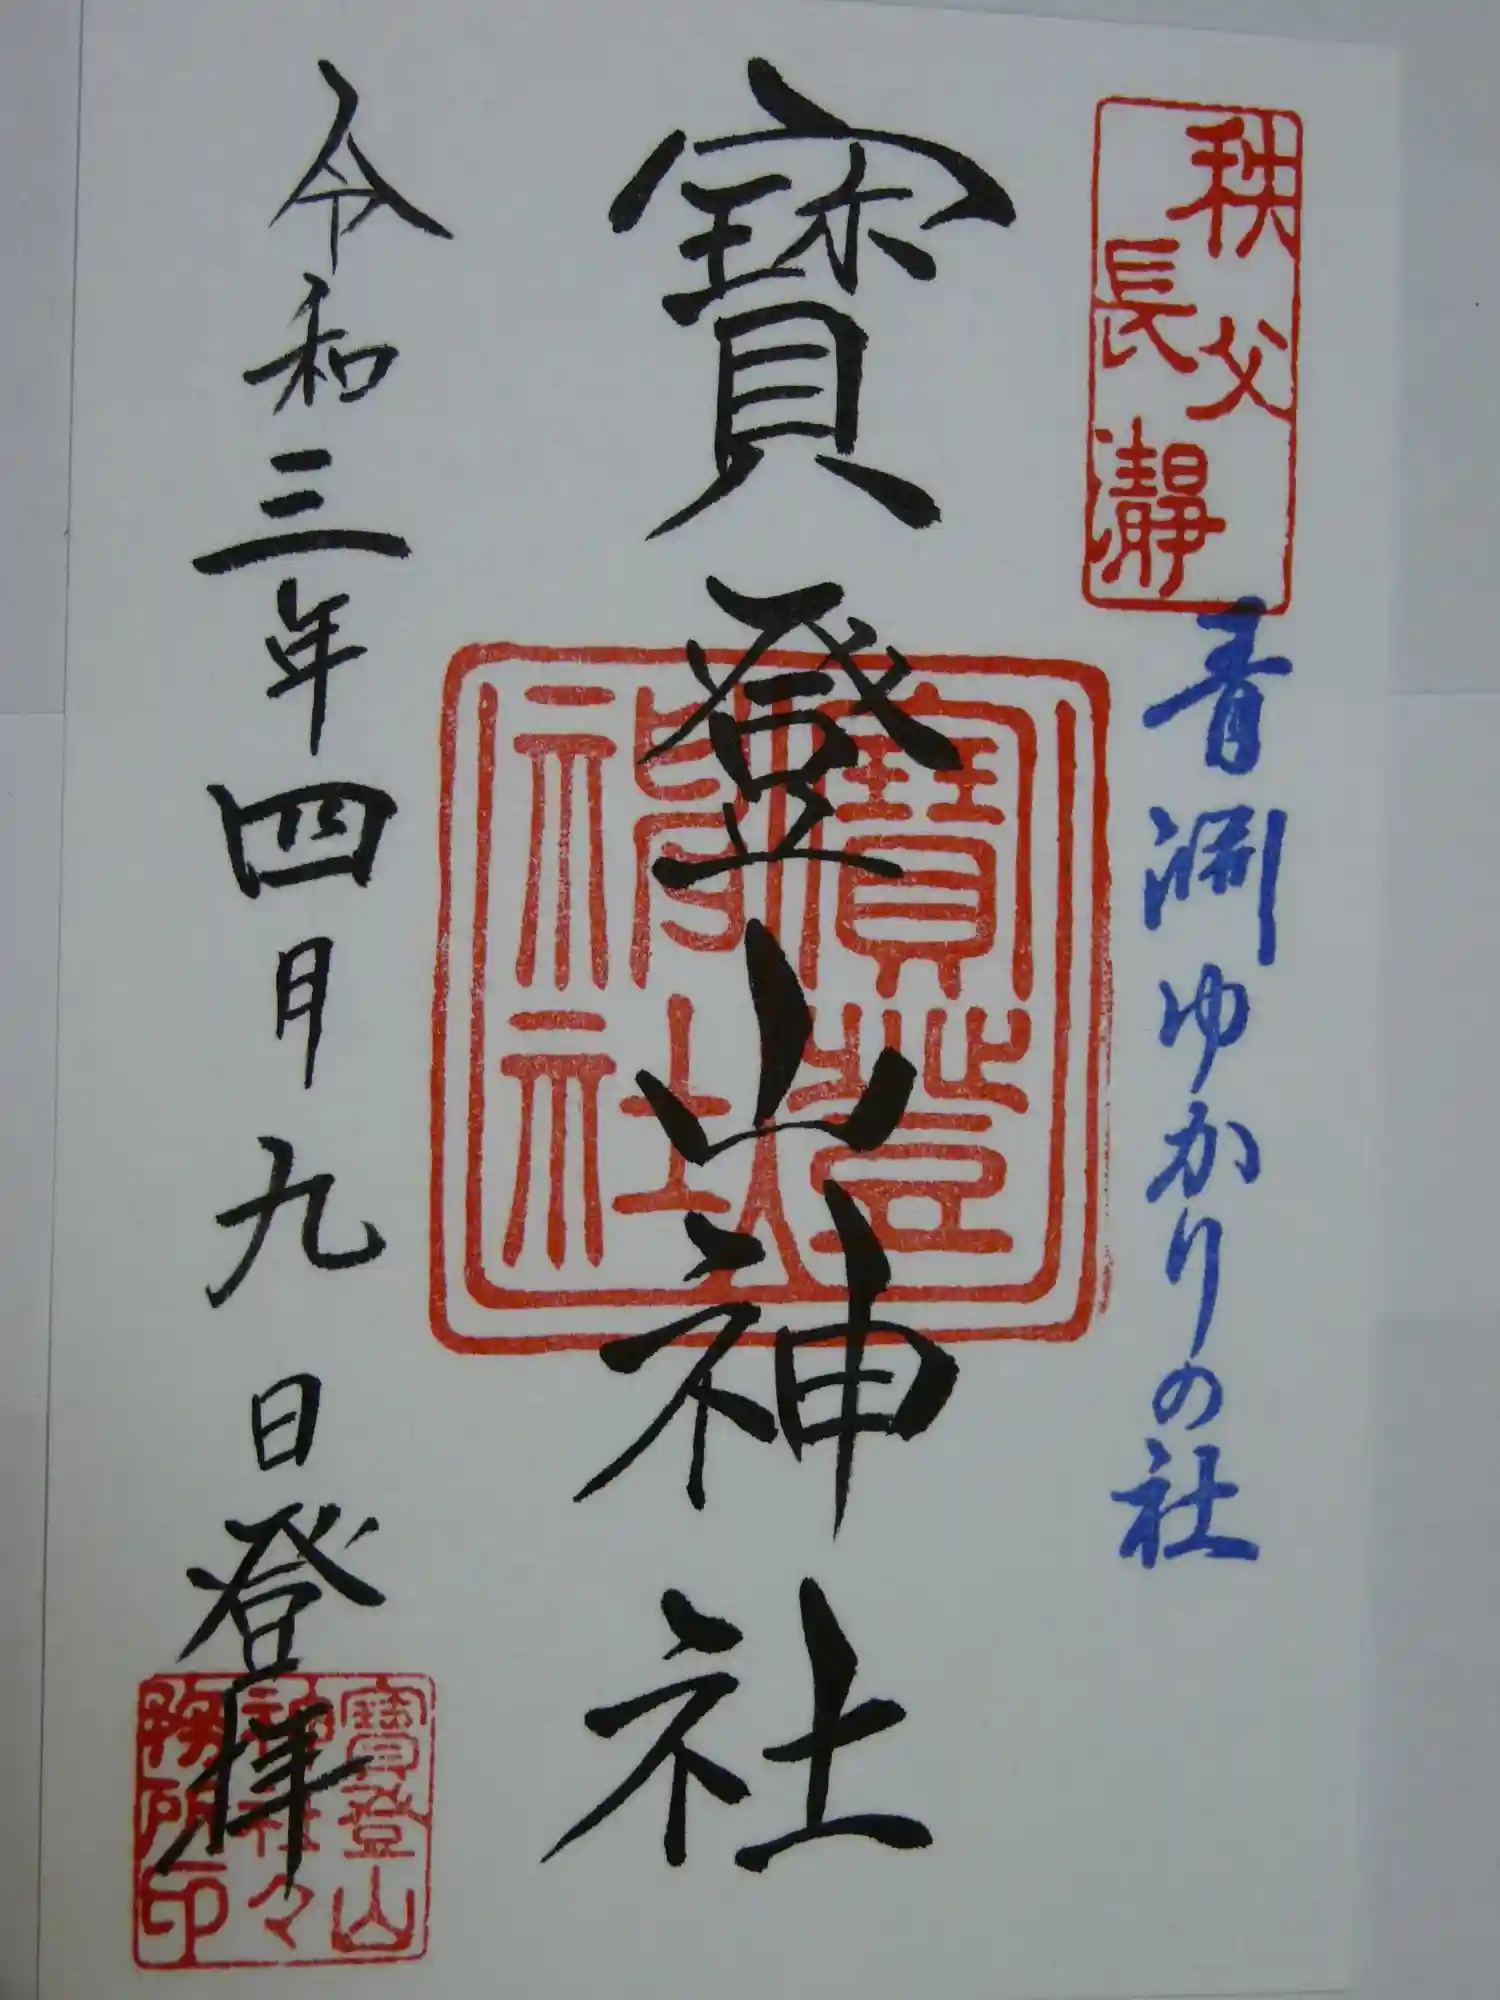 秩父
長瀞
青淵ゆかりの社
寳登山神社
寳登
山
神社
令和三年四月九日登拝
寳登山
神社々
務所印